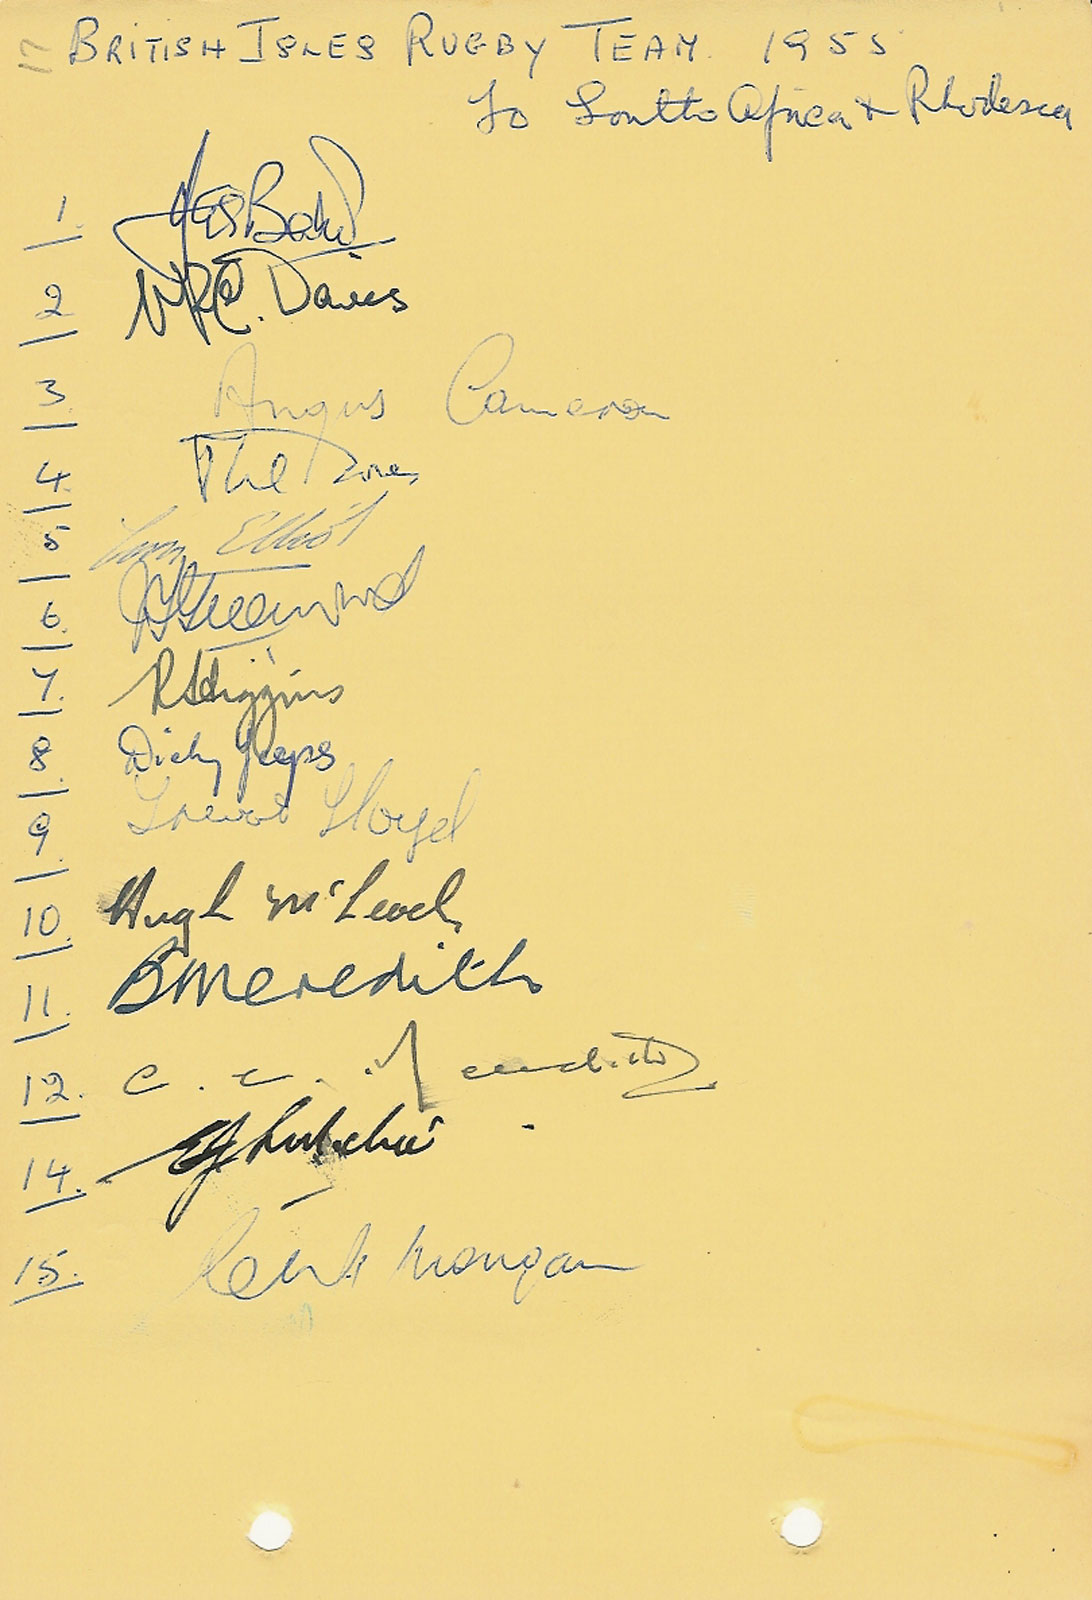 17 BRITISH ISLES RUGBY TEAM. 1955
To South Africa & Rhodesia
1.
2. W.P.C. Davies
3. Angus Cameron
4.
5. Tom Elliot
6. Greenwood
7. R Higgins
8. Dicky Jeeps
9. Trevor Lloyd
10. Hugh McLeod
11. B Meredith
12. C. C. Meredith
14.
15. Cliff Morgan